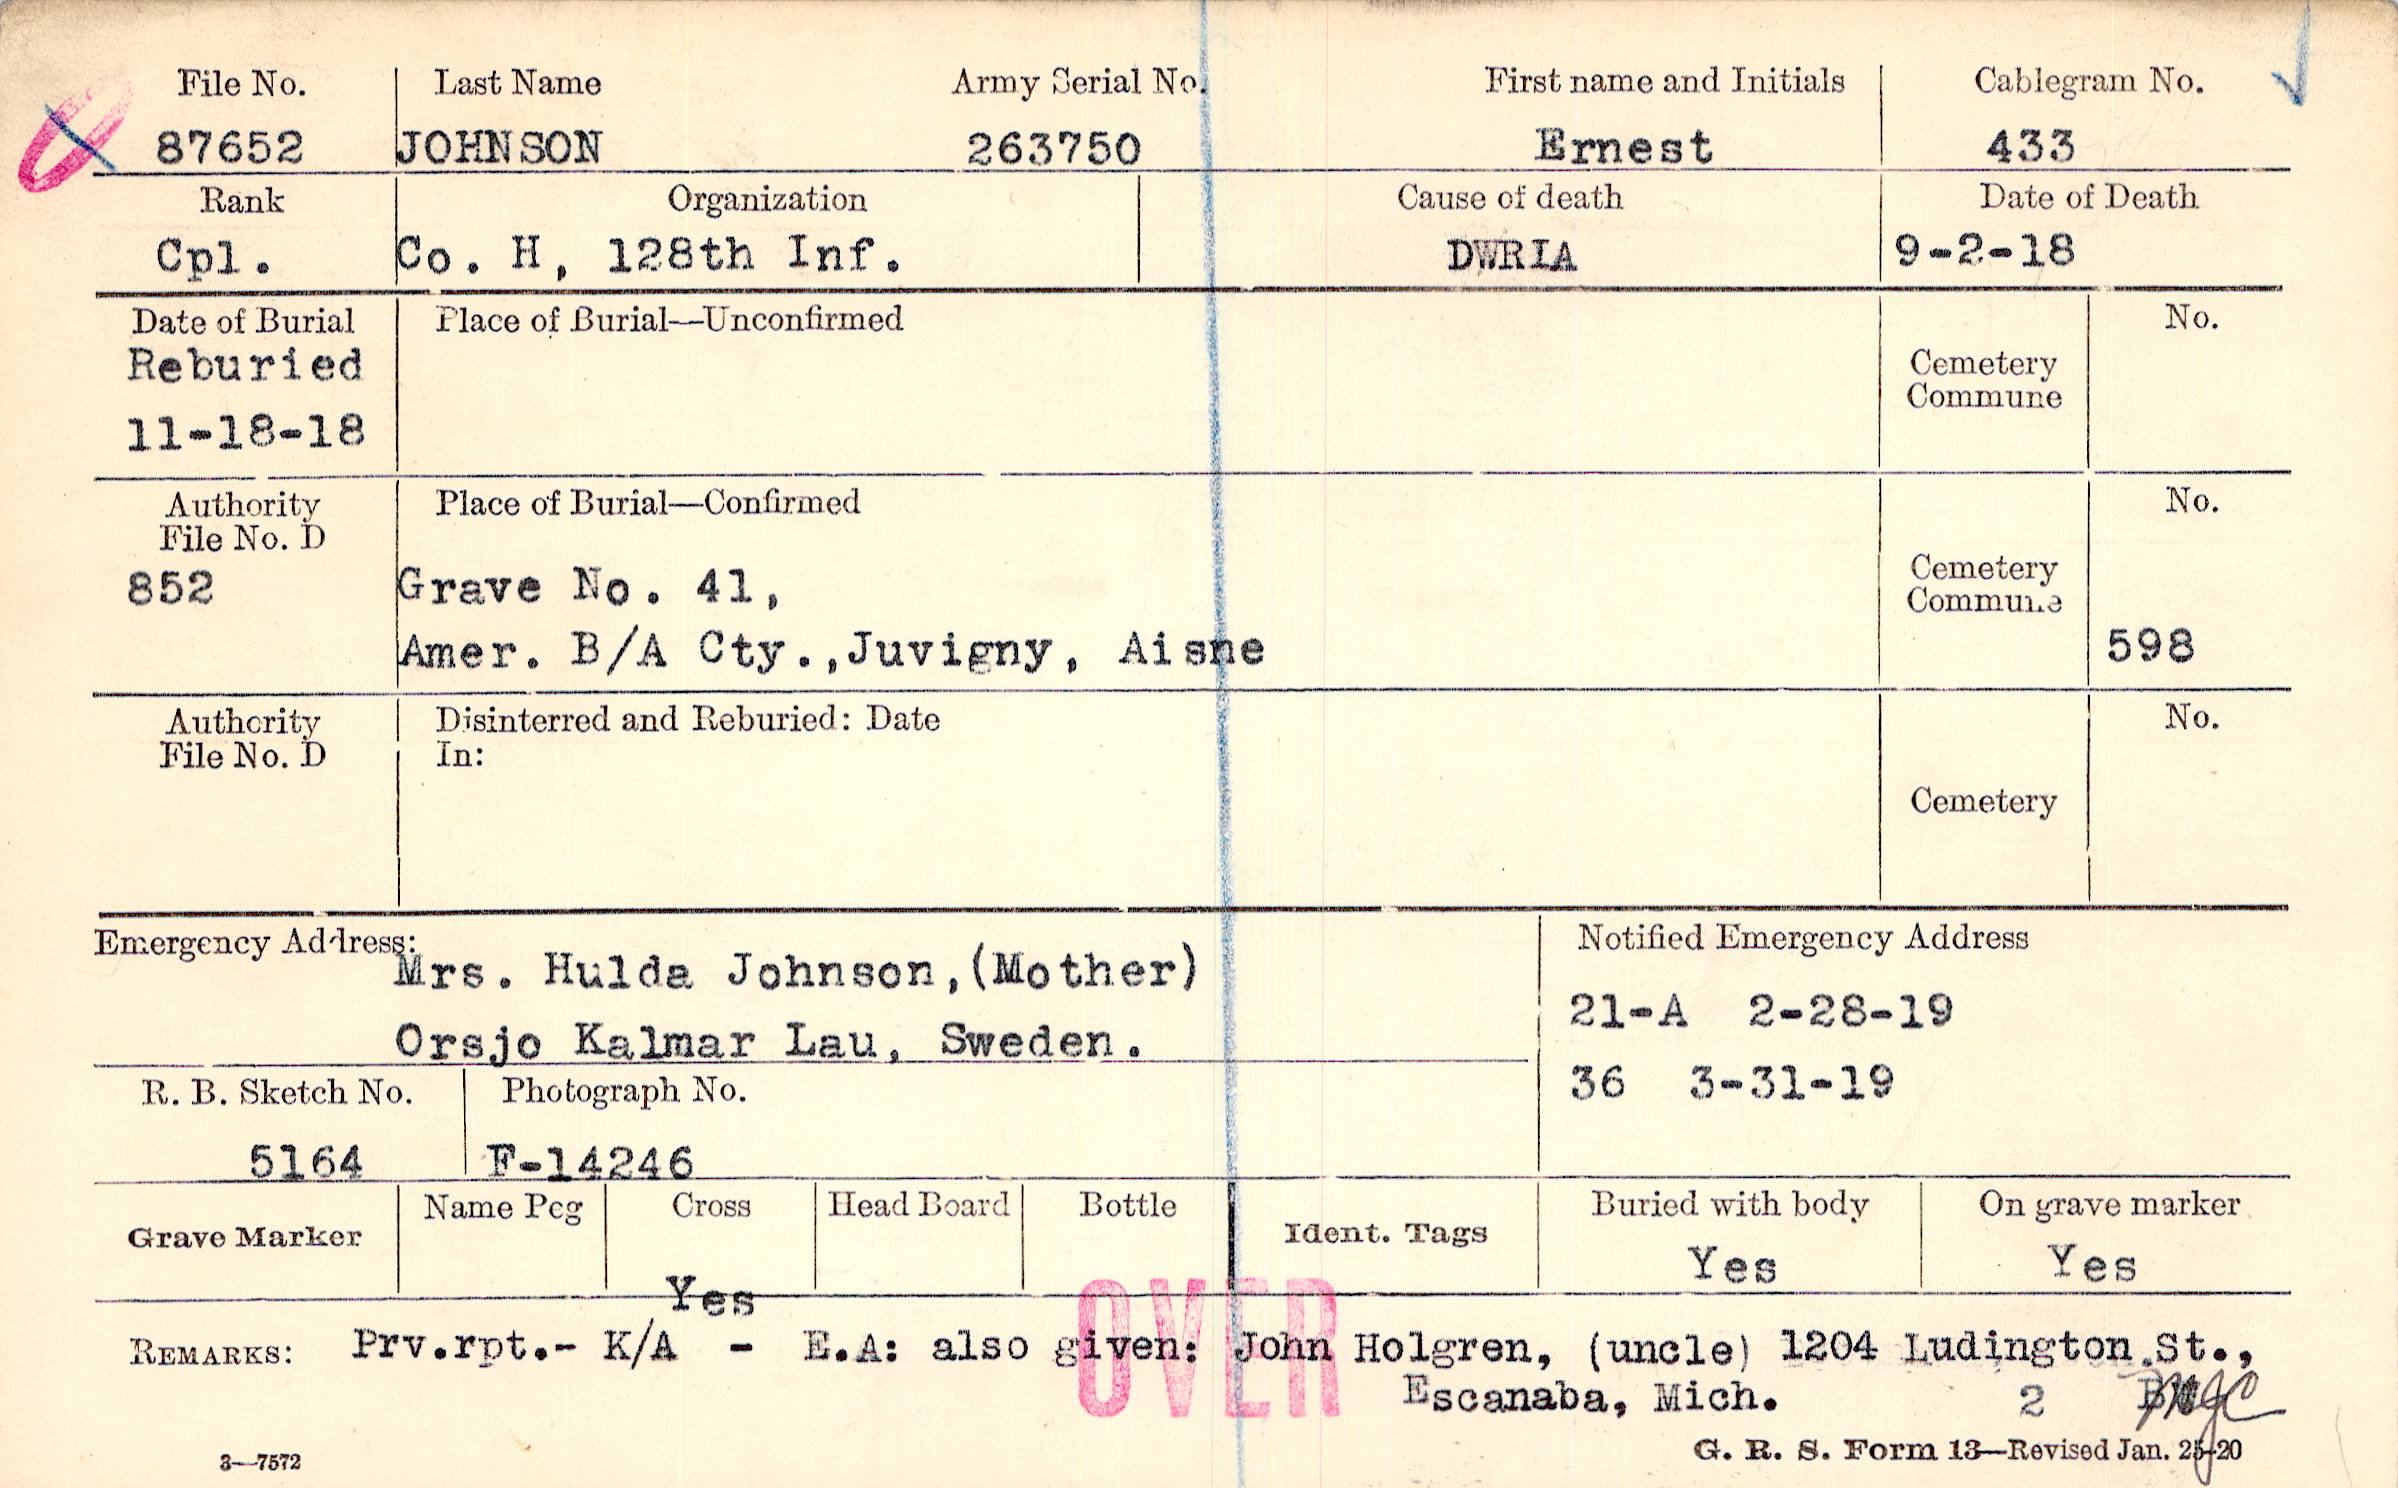 File No. Last Name Army Serial No. First name and Initials Cablegram No.
87652 JOHNSON 263750 Ernest 433
Rank Organization Cause of death Date of Death
Cpl. Co. H, 128th Inf. DWRIA 9-2-18
Date of Burial Place of Burial—Unconfirmed No.
Reburied
Cemetery
Commune
11-18-18
Authority Place of Burial—Confirmed No.
File No. D
852 Grave No. 41,
Cemetery
Commune
Amer. B/A Cty.,Juvigny, Aisne 598
Authority Disinterred and Reburied: Date No.
File No. D In:
Cemetery
Emergency Address: Notified Emergency Address
Mrs. Hulda Johnson,(Mother)
21-A 2-28-19
Orsjo Kalmar Lau, Sweden.
36 3-31-19
R. B. Sketch No. Photograph No.
5164 F-14246
Name Peg Cross Head Board Bottle Buried with body On grave marker
Grave Marker Ident. Tags
Yes Yes
Yes
OVER
REMARKS: Prv.rpt.- K/A - E.A: also given: John Holgren, (uncle) 1204 Ludington St.,
Escanaba, Mich. 2
3—7572 G. R. S. Form 13—Revised Jan. 25-20